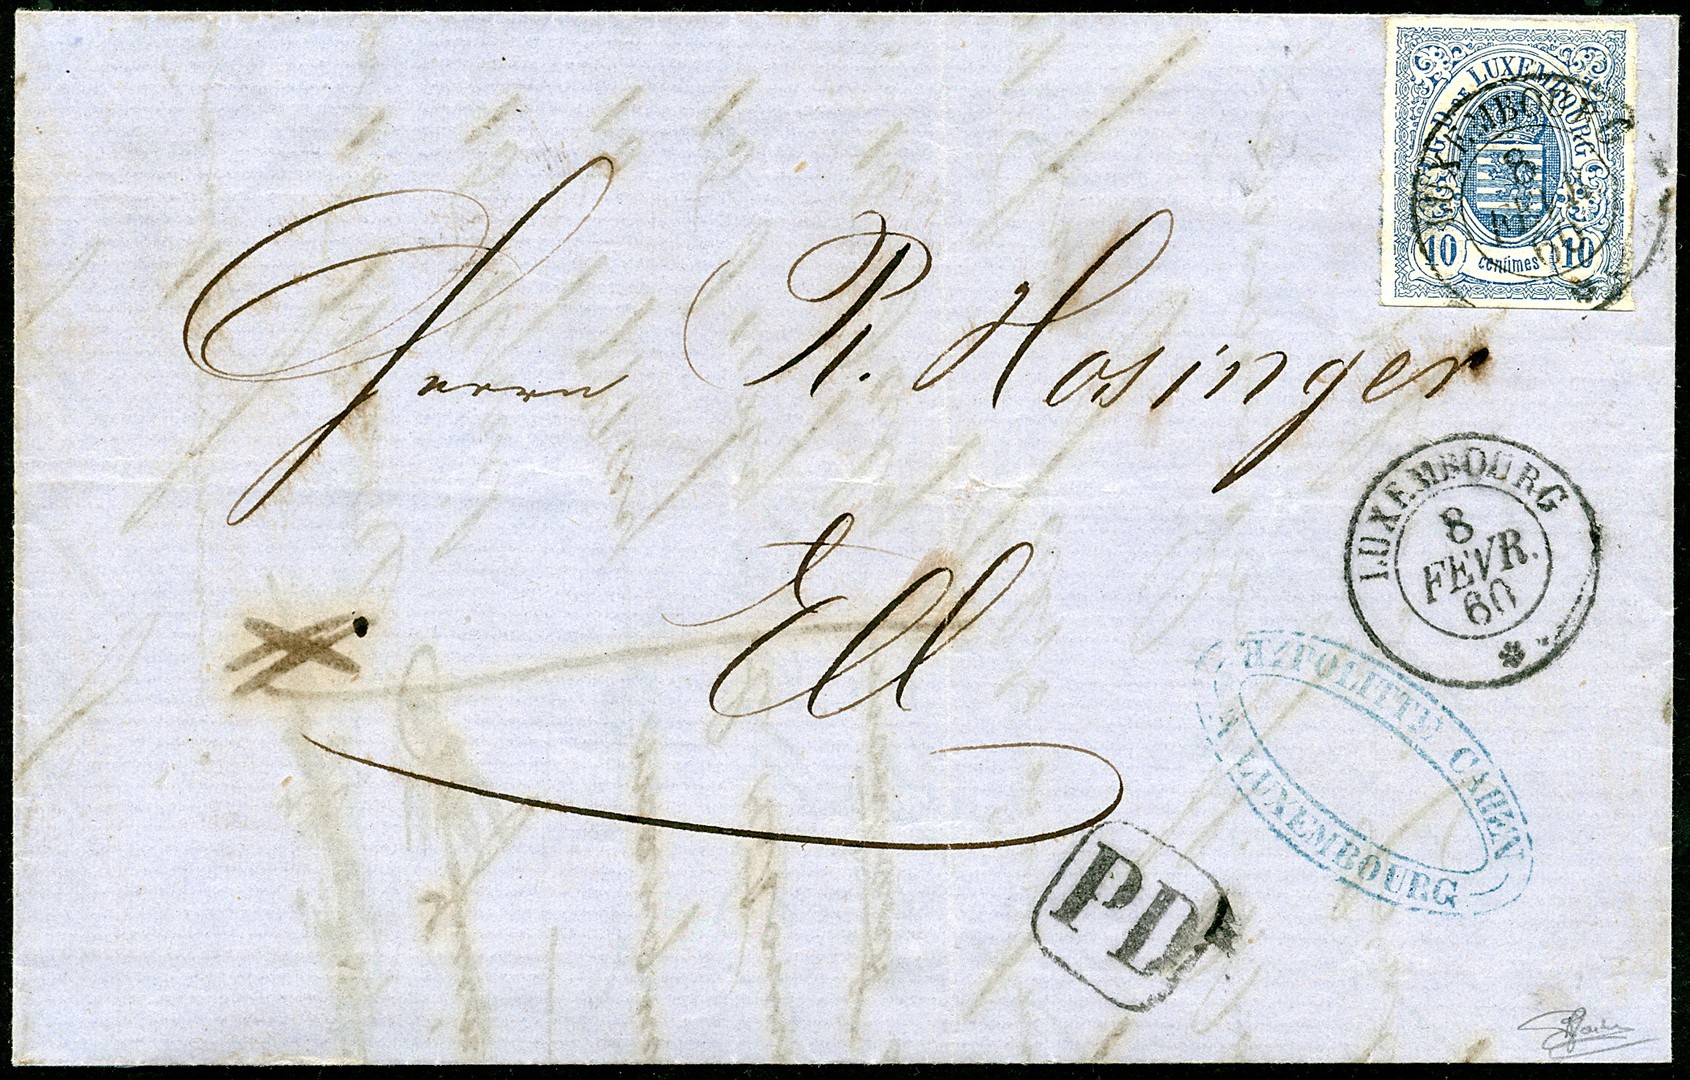 G.D. DE LUXEMBOURG
10 centimes 10
LUXEMBOURG
8
FEVR.
60
Herrn R. Hosinger
Ell
LUXEMBOURG
8
FEVR.
60
HYPOLITTE CAHEN
À LUXEMBOURG
PD